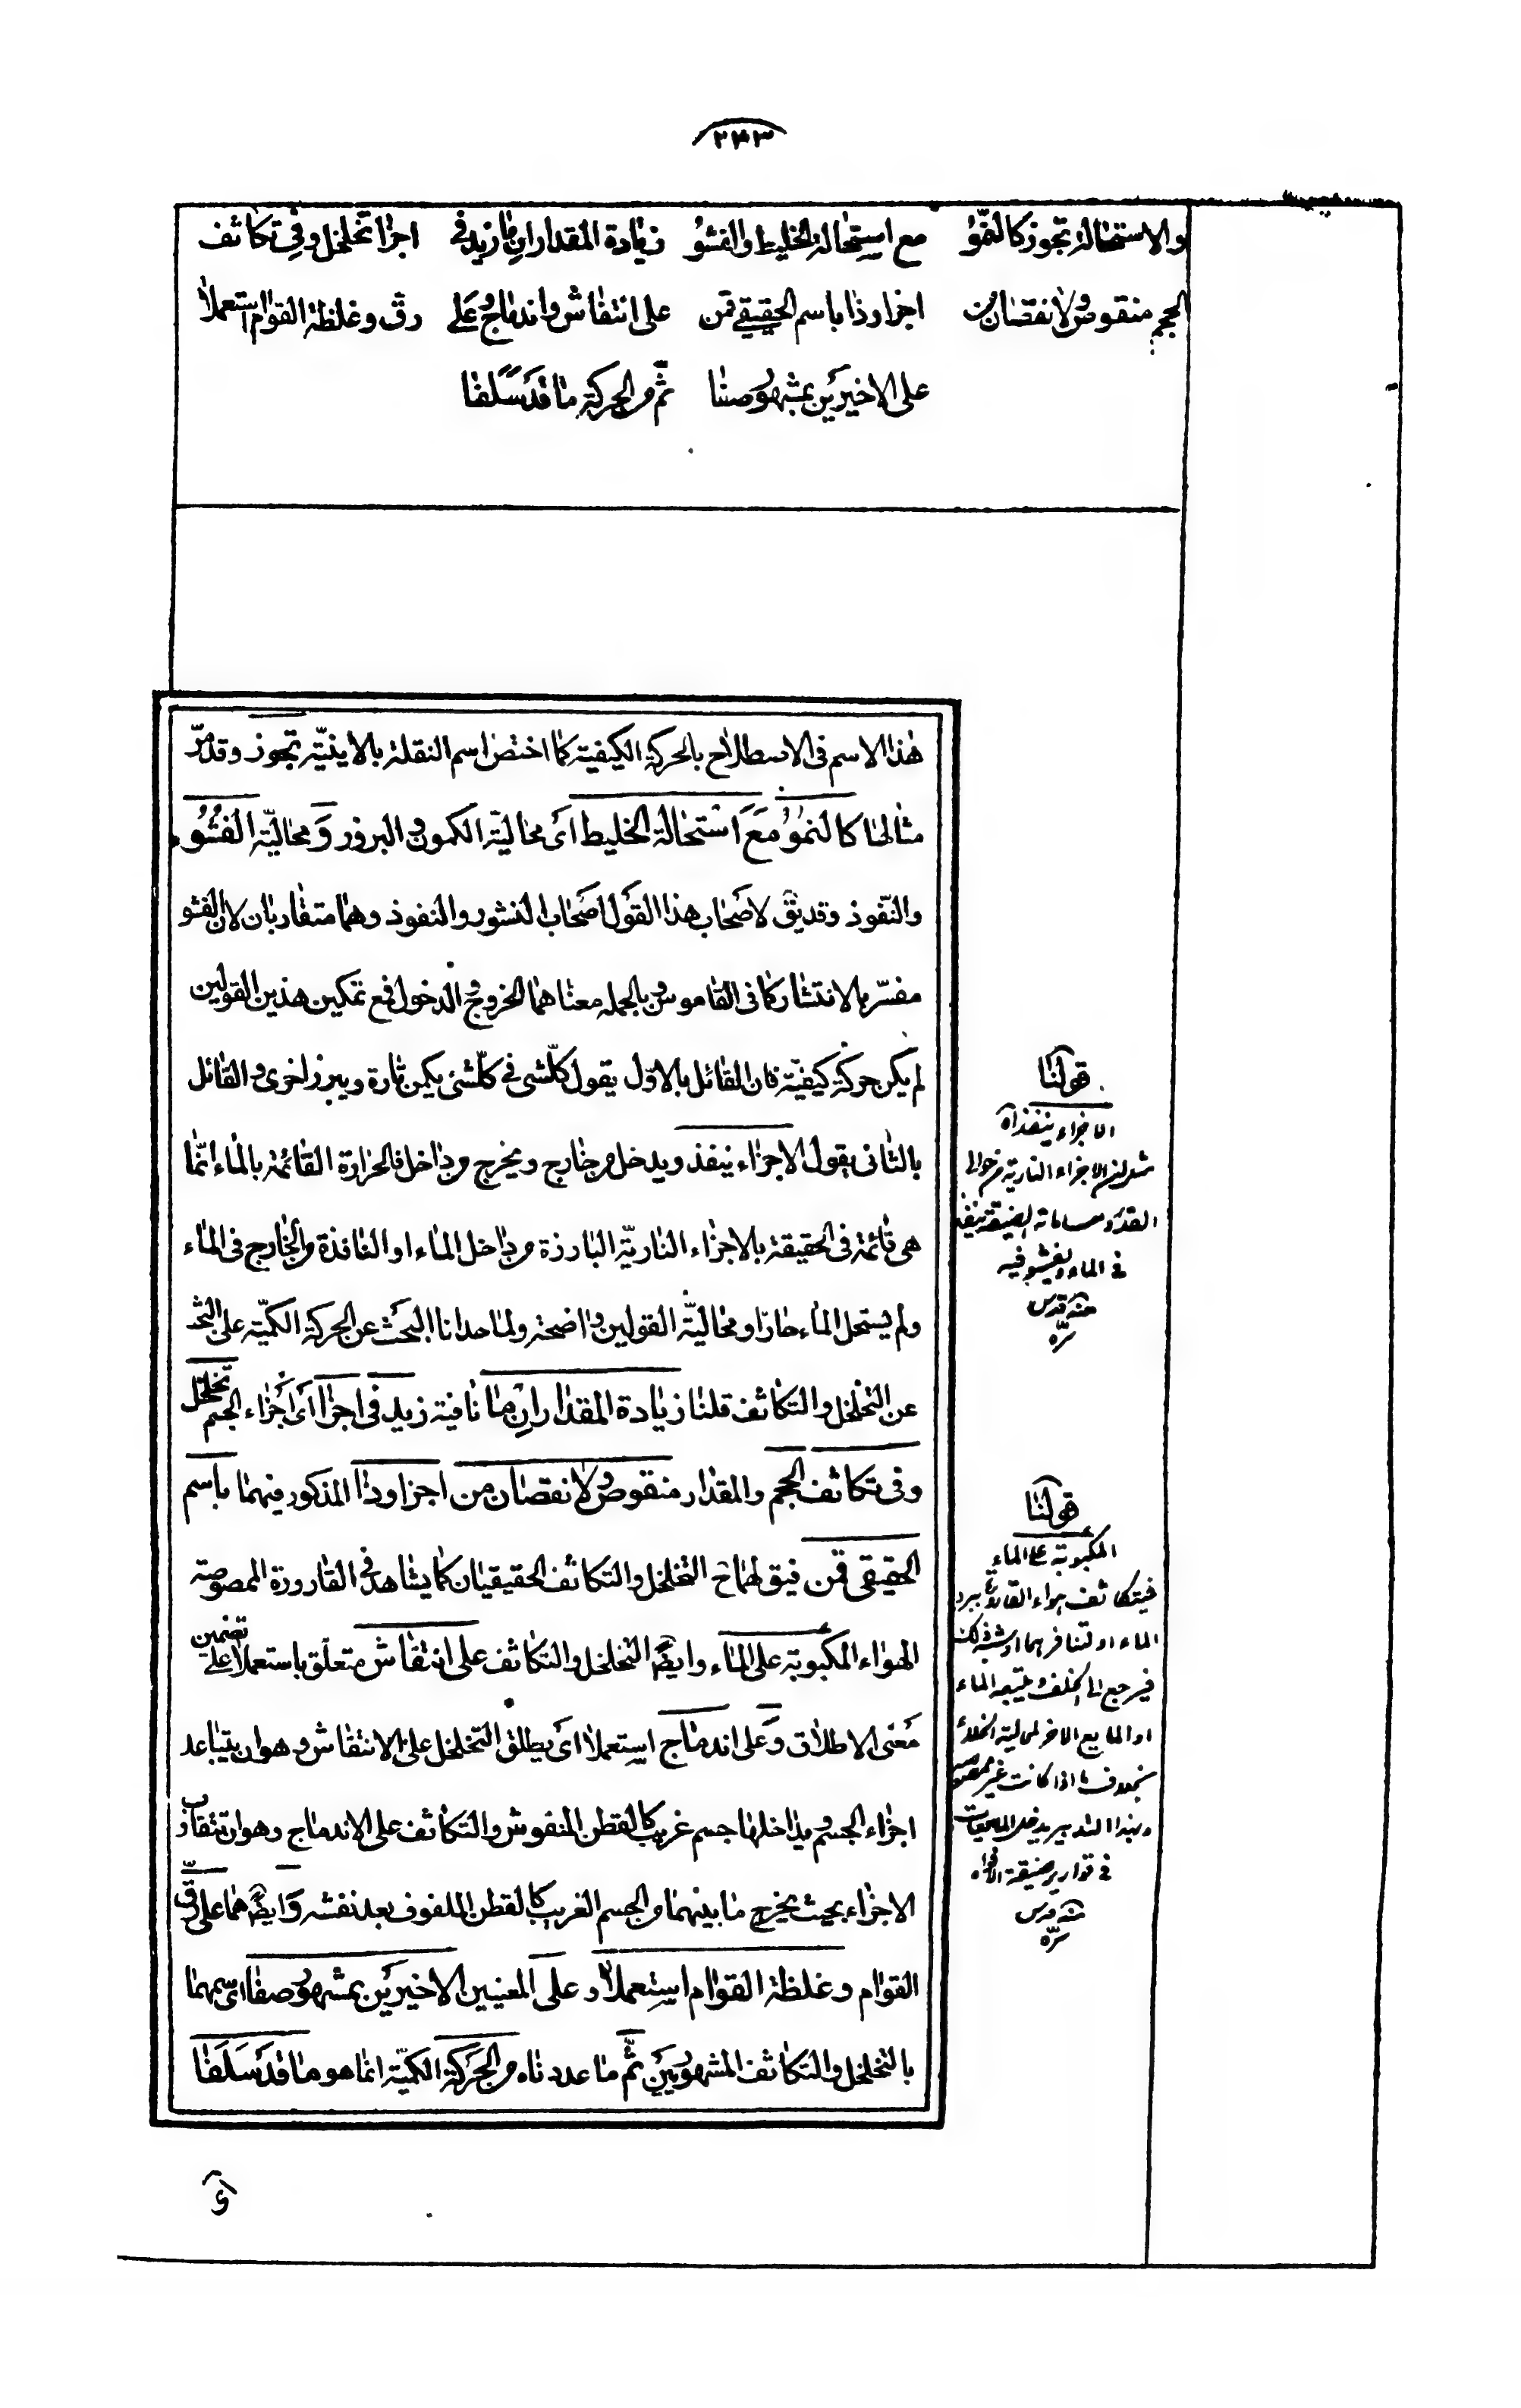 ٢٤٣
والاستحالة تجوز كالنموّ مع استحالة الخليط والفشوّ زيادة المقدار ان ما زيد في اجزا تخلخل وفي تكاثف
الحجم منقوص ولا نقصان من اجزا وذا باسم الحقيقي قمن على انتفاش واندماج وعلى رق وغلظة القوام استعملا
على الاخيرين بمشهور صفا ثمّ من الحركة ما قد سلفا
هذا الاسم فى الاصطلاح بالحركة الكيفية كما اختص اسم النقلة بالاينيّة تجوز وقد مرّ
مثالها كالنموّ مع استحالة الخليط اى محاليّة الكمون و البروز و محاليّة الفشوّ
والنّفوذ وقد يق لاصحاب هذا القول اصحاب النشور والنفوذ وهما متقاربان لان الفشو
مفسّر بالانتشار كما فى القاموس وبالجمله معناهما الخروج و الدخول فمع تمكين هذين القولين
لم يكن حركة كيفيّة فان القائل بالاوّل يقول كلّ شى فى كلّ شئ يكمن تارة ويبرز اخرى و القائل
بالثانى يقول الاجزاء ينفذ ويدخل من خارج ويخرج من داخل فالحرارة القائمة بالماء انّما
هى قائمة فى الحقيقة بالاجزاء الناريّة البارزة من داخل الماء او النافذة من الخارج فى الماء
ولم يستحل الماء حارّا و محاليّة القولين واضحة ولما حدانا البحث عن الحركة الكميّة على البحث
عن التخلخل والتكاثف قلنا زيادة المقدار ان ما نافية زيد فى اجزا اى اجزاء الجسم تخلخل
وفى تكاثف الحجم والمقدار منقوص و لا نقصان من اجزا وذا المذكور فيهما باسم
الحقيقى قمن فيق لهما ح التخلخل والتكاثف الحقيقيان كما يشاهد فى القارورة الممصوصة
الهواء المكبوبة على الماء وايضا التخلخل والتكاثف على انتفاش متعلّق باستعملا على تضمين
معنى الاطلاق وعلى اندماج استعملا اى يطلق التخلخل على الانتفاش وهو ان يتباعد
اجزاء الجسم ويداخلها جسم غريب كالقطن المنفوش والتكاثف على الاندماج وهو ان تتقارب
الاجزاء بحيث يخرج ما بينهما من الجسم الغريب كالقطن الملفوف بعد نفشه وايضا هما على رق
القوام وغلظة القوام استعملا و على المعنيين الاخيرين بمشهور صفا اى سمهما
بالتخلخل والتكاثف المشهورين ثمّ ما عددناه من الحركة الكميّة انما هو ما قد سلفا
قولنا
الاجزاء ينفذ اه
الاجزاء النارية من حوالى
القدر و مساماته الضيقة ينفذ
فى الماء ويفشو فيه
منه قدس
سرّه
قولنا
المكبوبة على الماء
فيتكاثف هواء القارورة ببرد
الماء او لتنافرهما او شبه ذلك
فيرجع الى الخلف و يتبعه الماء
او المايع الاخر لمحالية الخلاء
بخلاف ما اذا كانت غير ممصوصة
وبهذا التدبير يدخل المايعات
فى قوارير ضيقة الافواه
منه قدس
سرّه